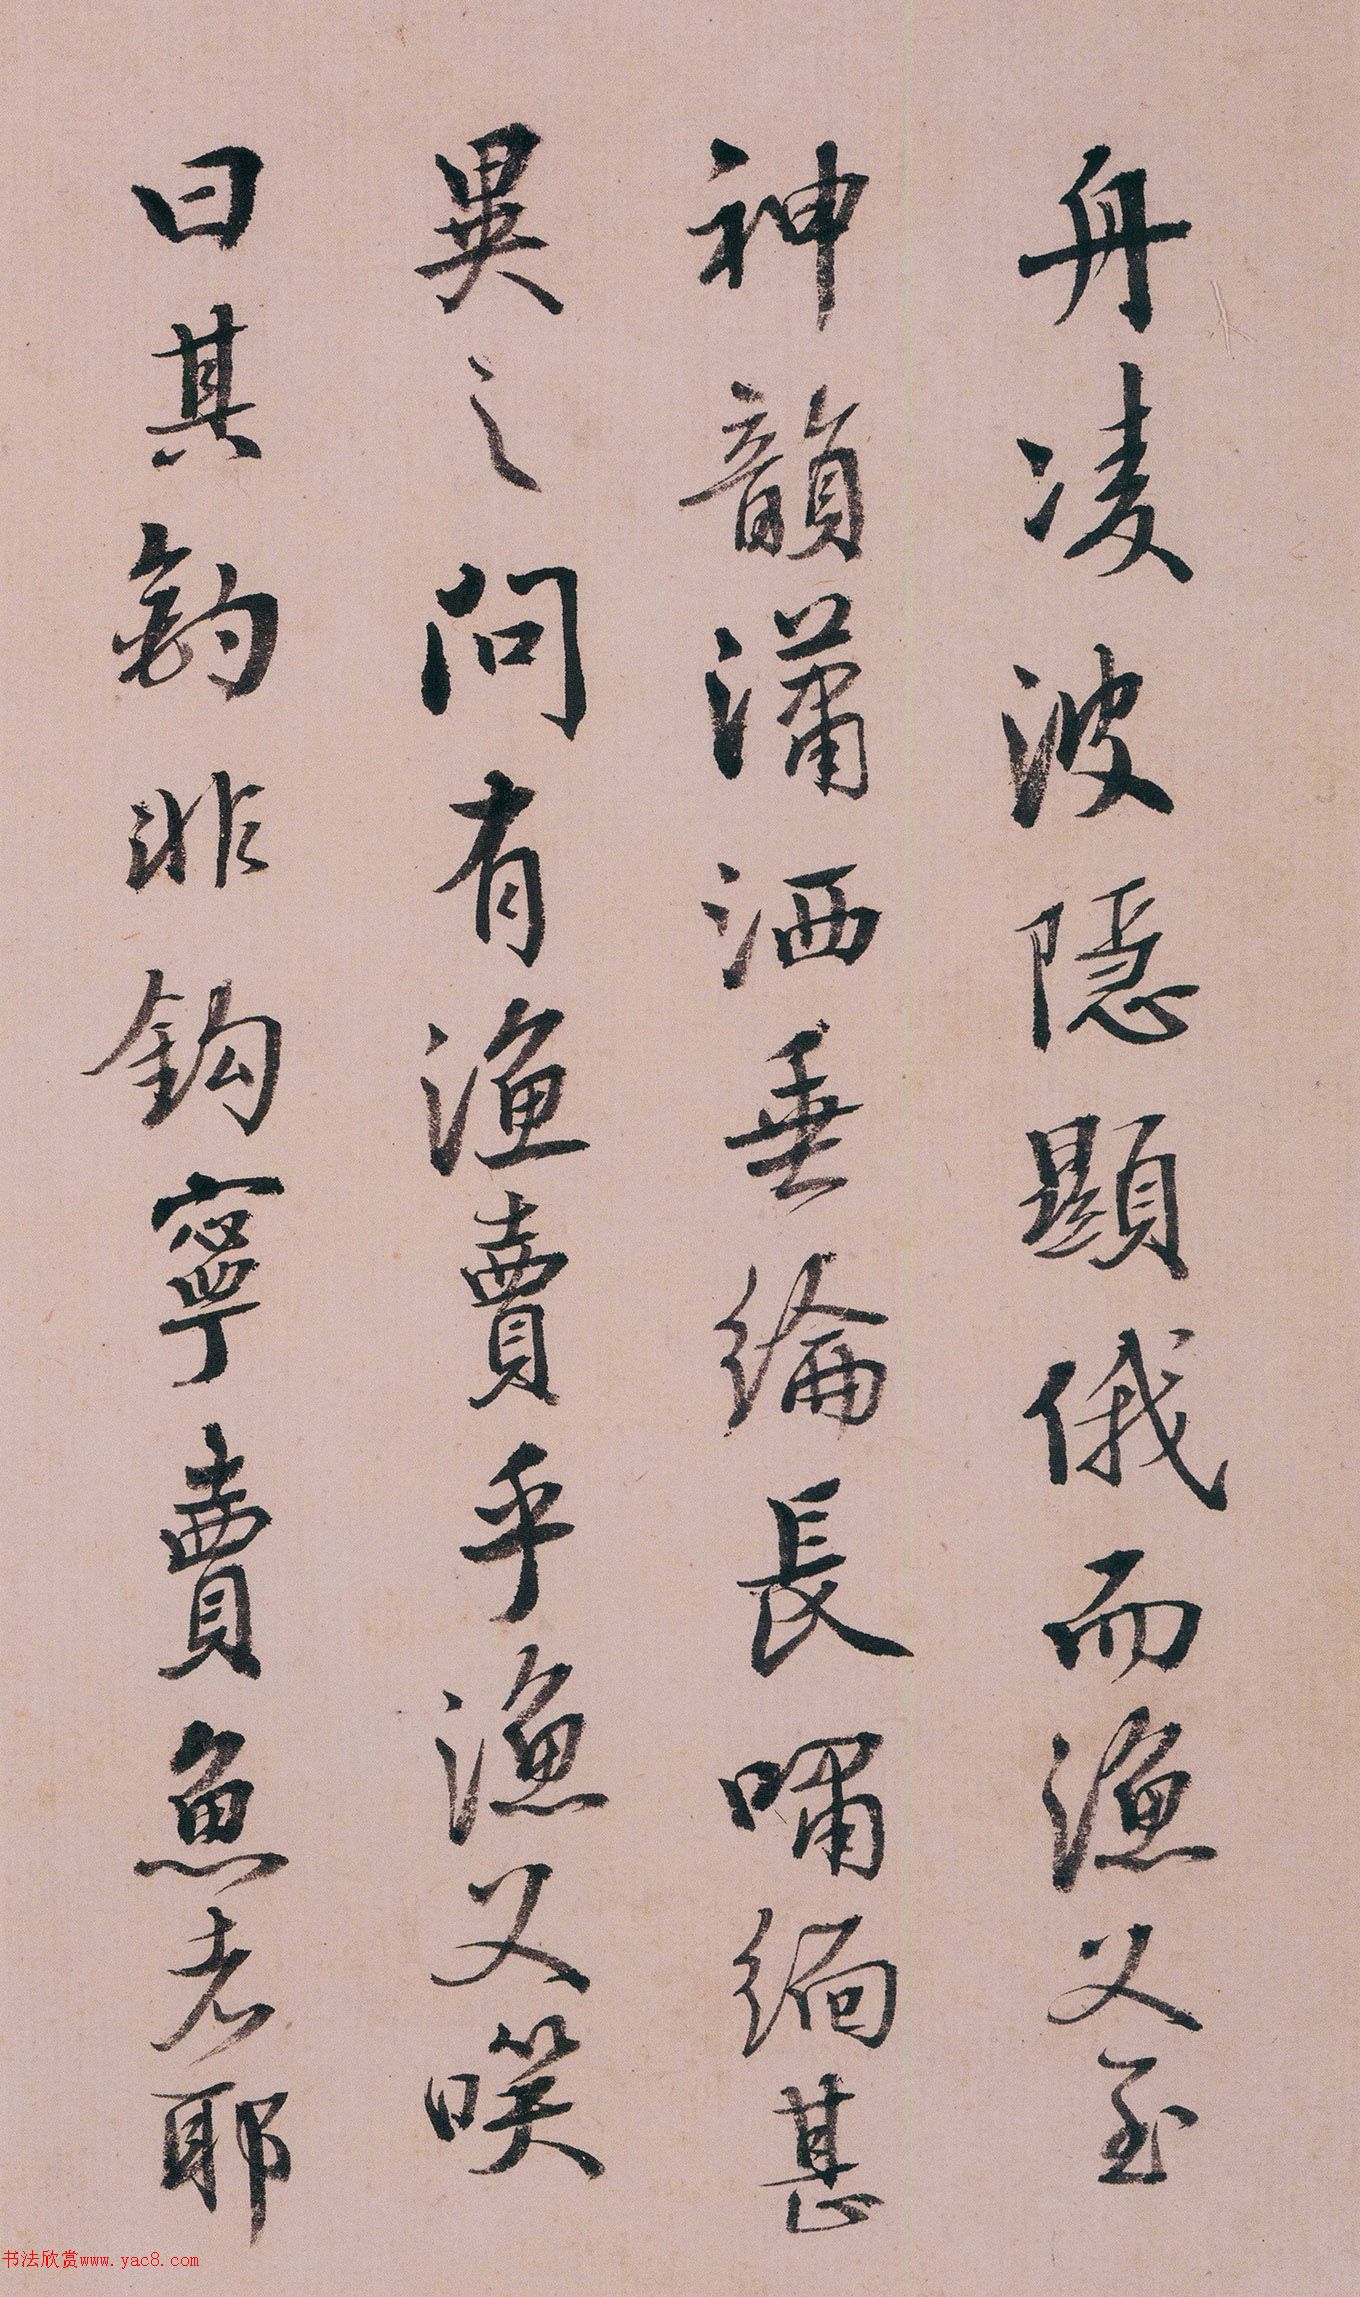 舟凌波隱顯俄而漁父至
神韻瀟洒垂綸長嘯緬甚
異之問有漁賣乎漁父暯
曰其釣非鈎寧賣魚者耶
书法欣赏www.yac8.com